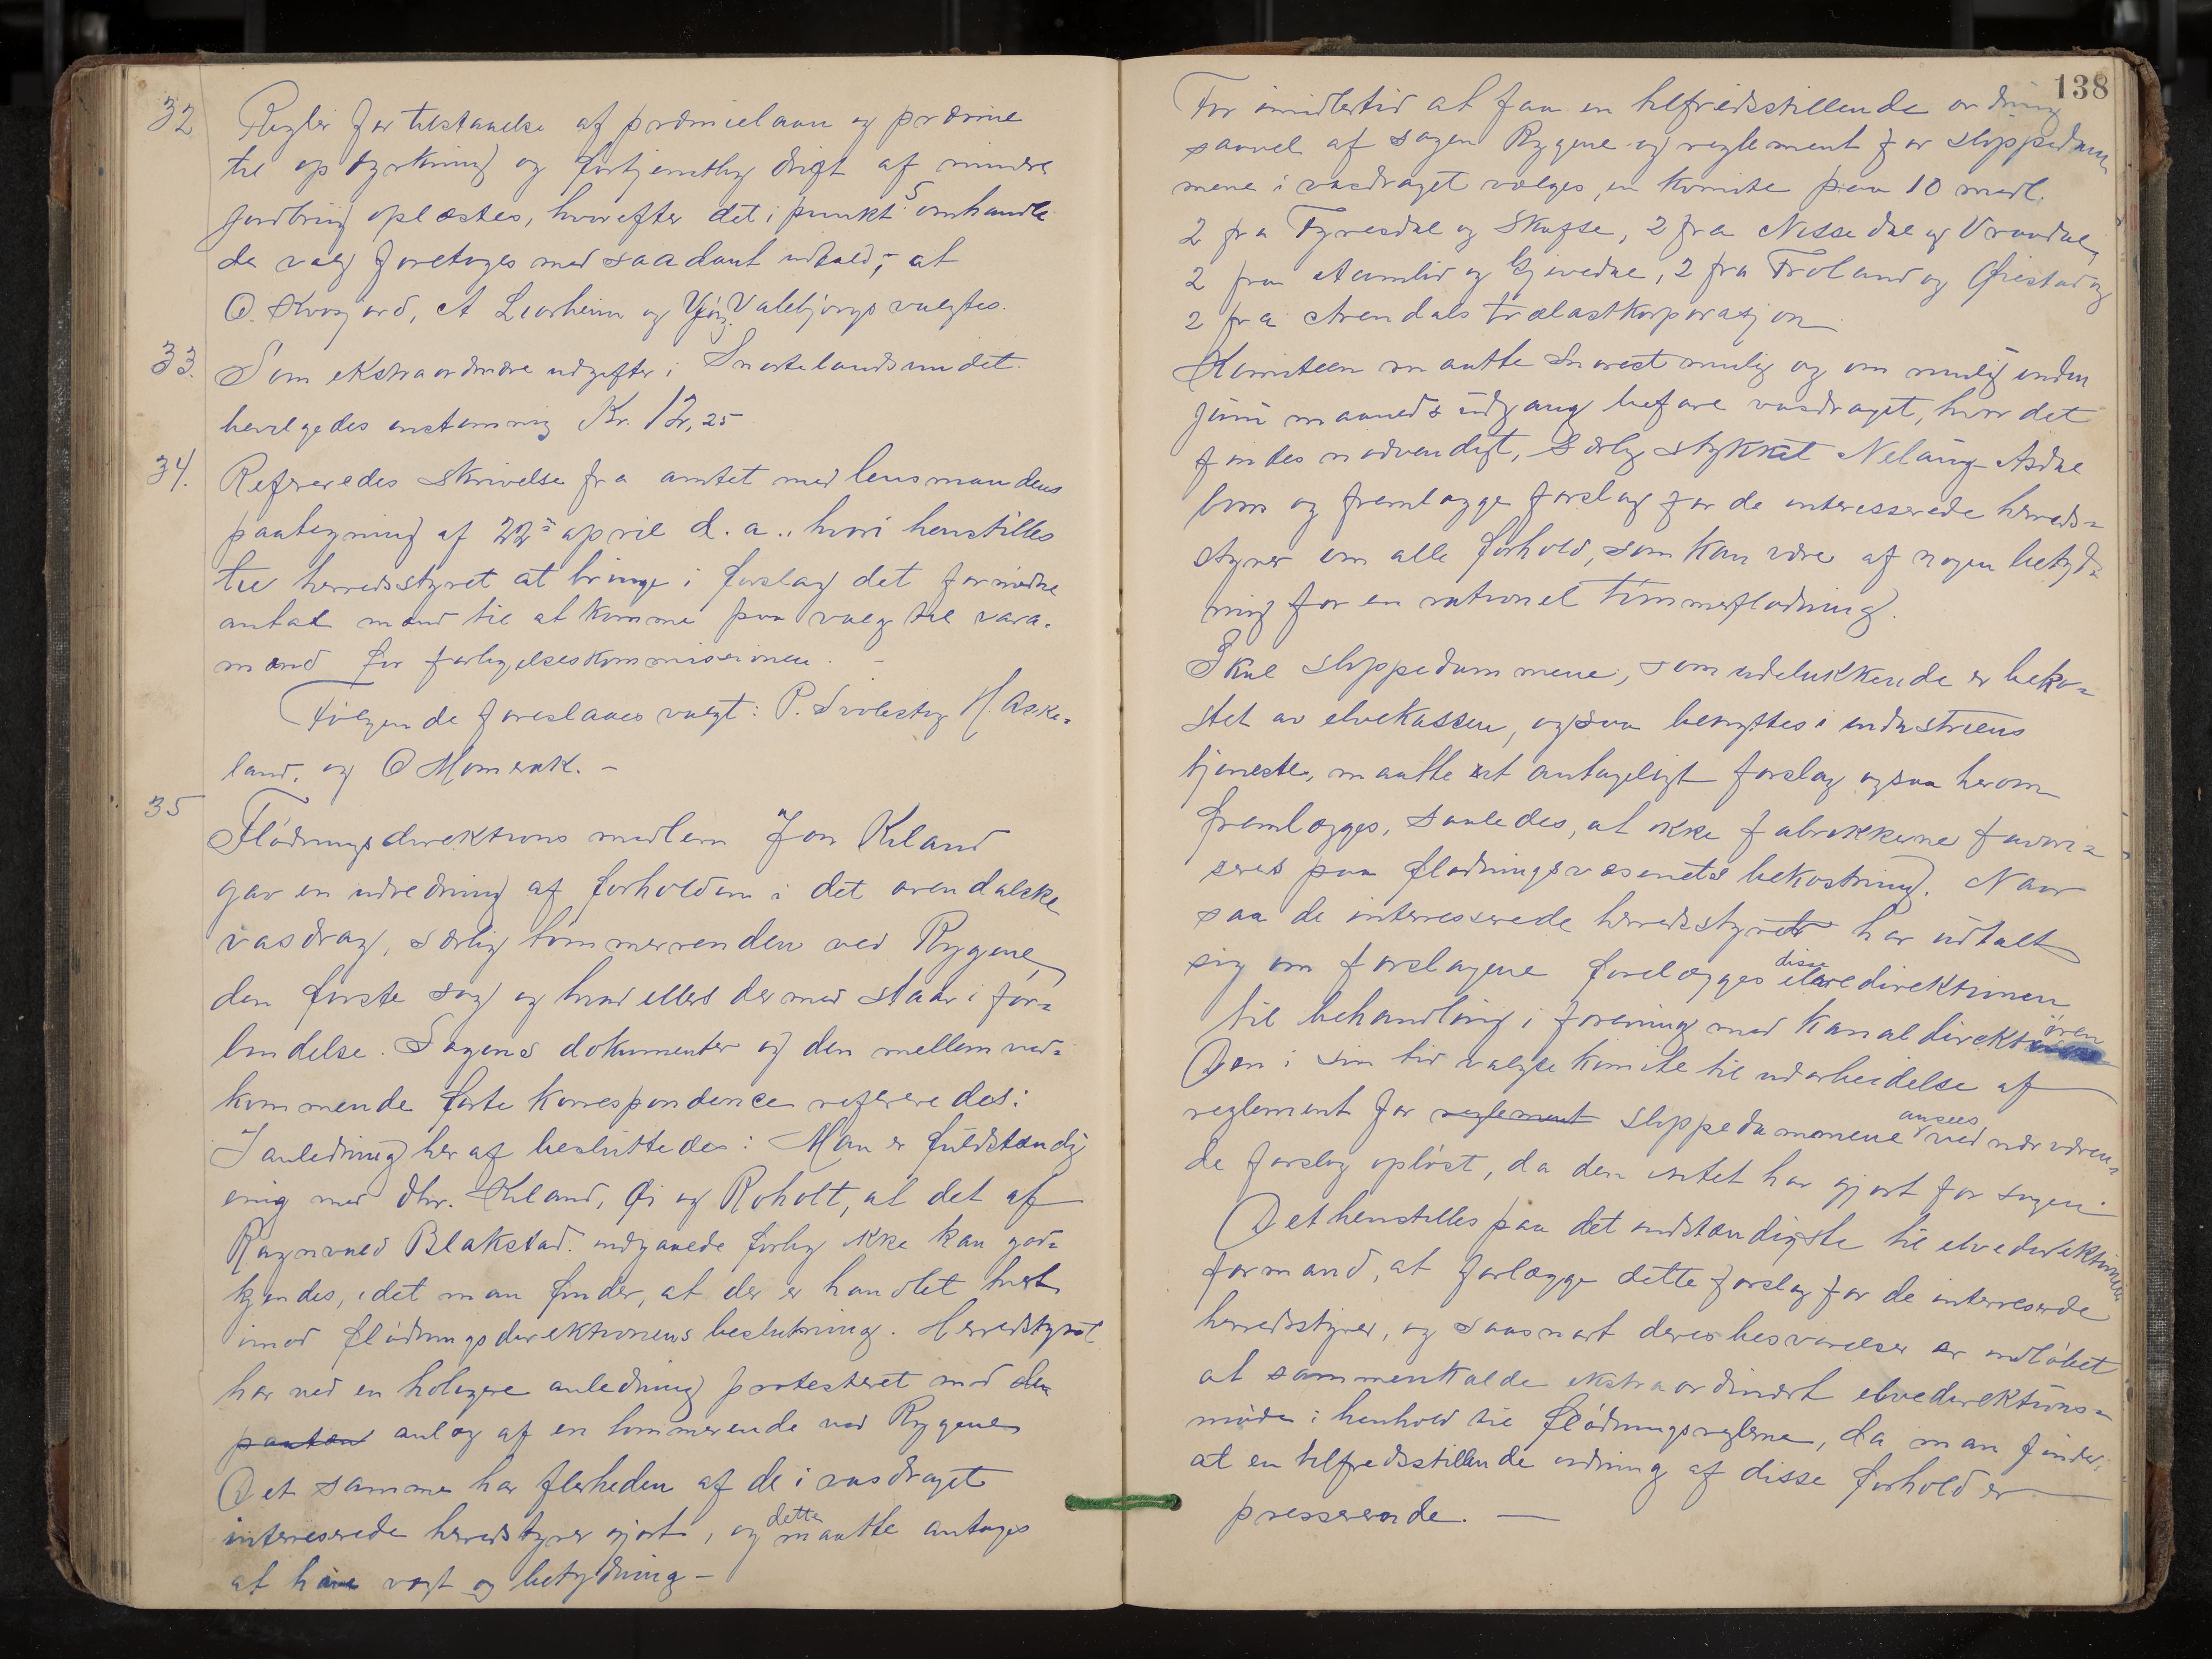 32 Regler for tilstaaelse af præmielaan og præmie
til opdyrkning og fortjenstlig drift af mindre
jordbrug oplæstes, hvorefter det i punkt 5 omhandle
de valg foretoges med saadant udfald, at
O. A Lirheim og Valebjørgs valgtes.
33. Som ekstraordinære udgifter i Snartelandsundet
bevilgedes enstemmig Kr. 12,25
34. Refereredes skrivelse fra amtet med lensmandens
paategning af 22de april d. a., hvori henstilles
til herredsstyret at bringe i forslag det fornødne
antal mænd til at komme paa valg til vara-
mænd for forligelseskommissionen. -
Følgende foreslaaes valgt: P. H. Aske-
land, og O Momrak. -
35 Flødningsdirektions medlem Jon Kiland
gav en udredning af forholdene i det arendalske
vasdrag, særlig tømmerrenden ved Rygene,
den første sag og hvad ellers dermed staar i for-
bindelse. Sagens dokumenter og den mellem ved-
kommende førte korrespondence refereredes:
I anledning heraf besluttedes: Man er fuldstændig
enig med dhr. Kiland, Øi og Roholt, at det af
Ragnvald Blakstad indgaaede forlig ikke kan god-
kjendes, idet man finder, at der er handlet tvert
imod flødningsdirektionens beslutning. Herredstyret
har ved en tidligere anledning protesteret mod den
anlæg af en tømmerrende ved Rygene
Det samme har flerheden af de i vasdraget
interesserede herredstyrer gjort, og dette maatte antages
at have vægt og betydning -
138
For imidlertid at faa en tilfredsstillende ordning
saavel af sagen Rygene og reglement for slippedam
mene i vasdraget vælges en komite paa 10 medl.
2 fra Fyresdal og Skafse, 2 fra Nissedal og Vraadal,
2 fra Aamlid og Gjevedal, 2 fra Froland og Øiestad og
2 fra Arendals trælastkorporasjon
Komiteen maatte snarest mulig og om mulig inden
juni maaneds udgang befare vasdraget, hvor det
findes nødvendigt, særlig stykket Nelaug - Asdal
bom og fremlægge forslag for de interesserede herreds-
styrer om alle forhold, som kan være af nogen betyd-
ning for en rationel tømmerflødning.
Skal slippedammene, som udelukkende er beko-
stet av elvekassen, ogsaa benyttes i industriens
tjeneste, maatte et antageligt forslag ogsaa herom
fremlægges, saaledes, at ikke fabrikkerne favori-
seres paa flødningsvæsenets bekostning. Naar
saa de interresserede herredsstyrer har udtalt
sig om forslagene forelægges disse elvedirektionen
til behandling i forening med kanaldirektøren
Den i sin tid valgte komite til udarbeidelse af
reglement for reglement slippedammene ansees ved nærværen-
de forslag opløst, da den intet har gjort for sagen.
Det henstilles paa det indstændigste til elvedirektionens
formand, at forlægge dette forslag for de interreserede
herredsstyrer, og saasnart deres besvarelser er indløbet
at sammenkalde ekstraordinært elvedirektions-
møde i henhold til flødningsreglerne, da man finder,
at en tilfredsstillende ordning af disse forhold er
presserende. -